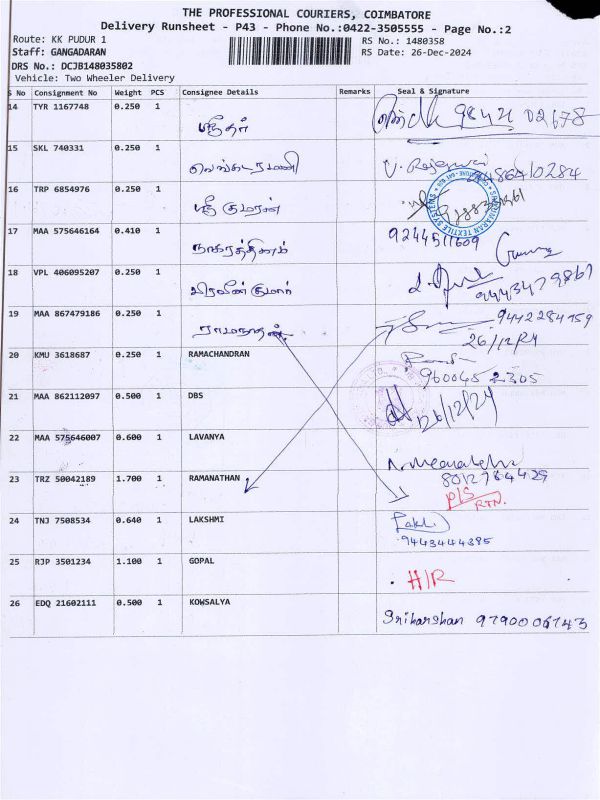 THE PROFESSIONAL COURIERS, COIMBATORE
Delivery Runsheet - P43 - Phone No.:0422-3505555 - Page No.:2
Route: KK PUDUR 1
RS No.: 1480358
Staff: GANGADARAN
RS Date: 26-Dec-2024
DRS No.: DCJB148035802
Vehicle: Two Wheeler Delivery
S No Consignment No Weight PCS Consignee Details Remarks Seal & Signature
14 TYR 1167748 0.250 1 ஸ்ரீதர் 98421 02678
15 SKL 740331 0.250 1 வெங்கடரமணி
16 TRP 6854976 0.250 1 ஸ்ரீ குமரன்
17 MAA 575646164 0.410 1 நாகரத்தினம் 9244511609
18 VPL 406095207 0.250 1 பிரவீன்குமார் 9443479867
19 MAA 867479186 0.250 1 ராமநாதன் 9442284159
26/12/24
20 KMU 3618687 0.250 1 RAMACHANDRAN
960045 2305
21 MAA 862112097 0.500 1 DBS 26/12/24
22 MAA 575646007 0.600 1 LAVANYA
23 TRZ 50042189 1.700 1 RAMANATHAN 8012784429
P/S
RTN.
24 TNJ 7508534 0.640 1 LAKSHMI
9443444385
25 RJP 3501234 1.100 1 GOPAL H/R
26 EDQ 21602111 0.500 1 KOWSALYA Sriharshan 9790006743